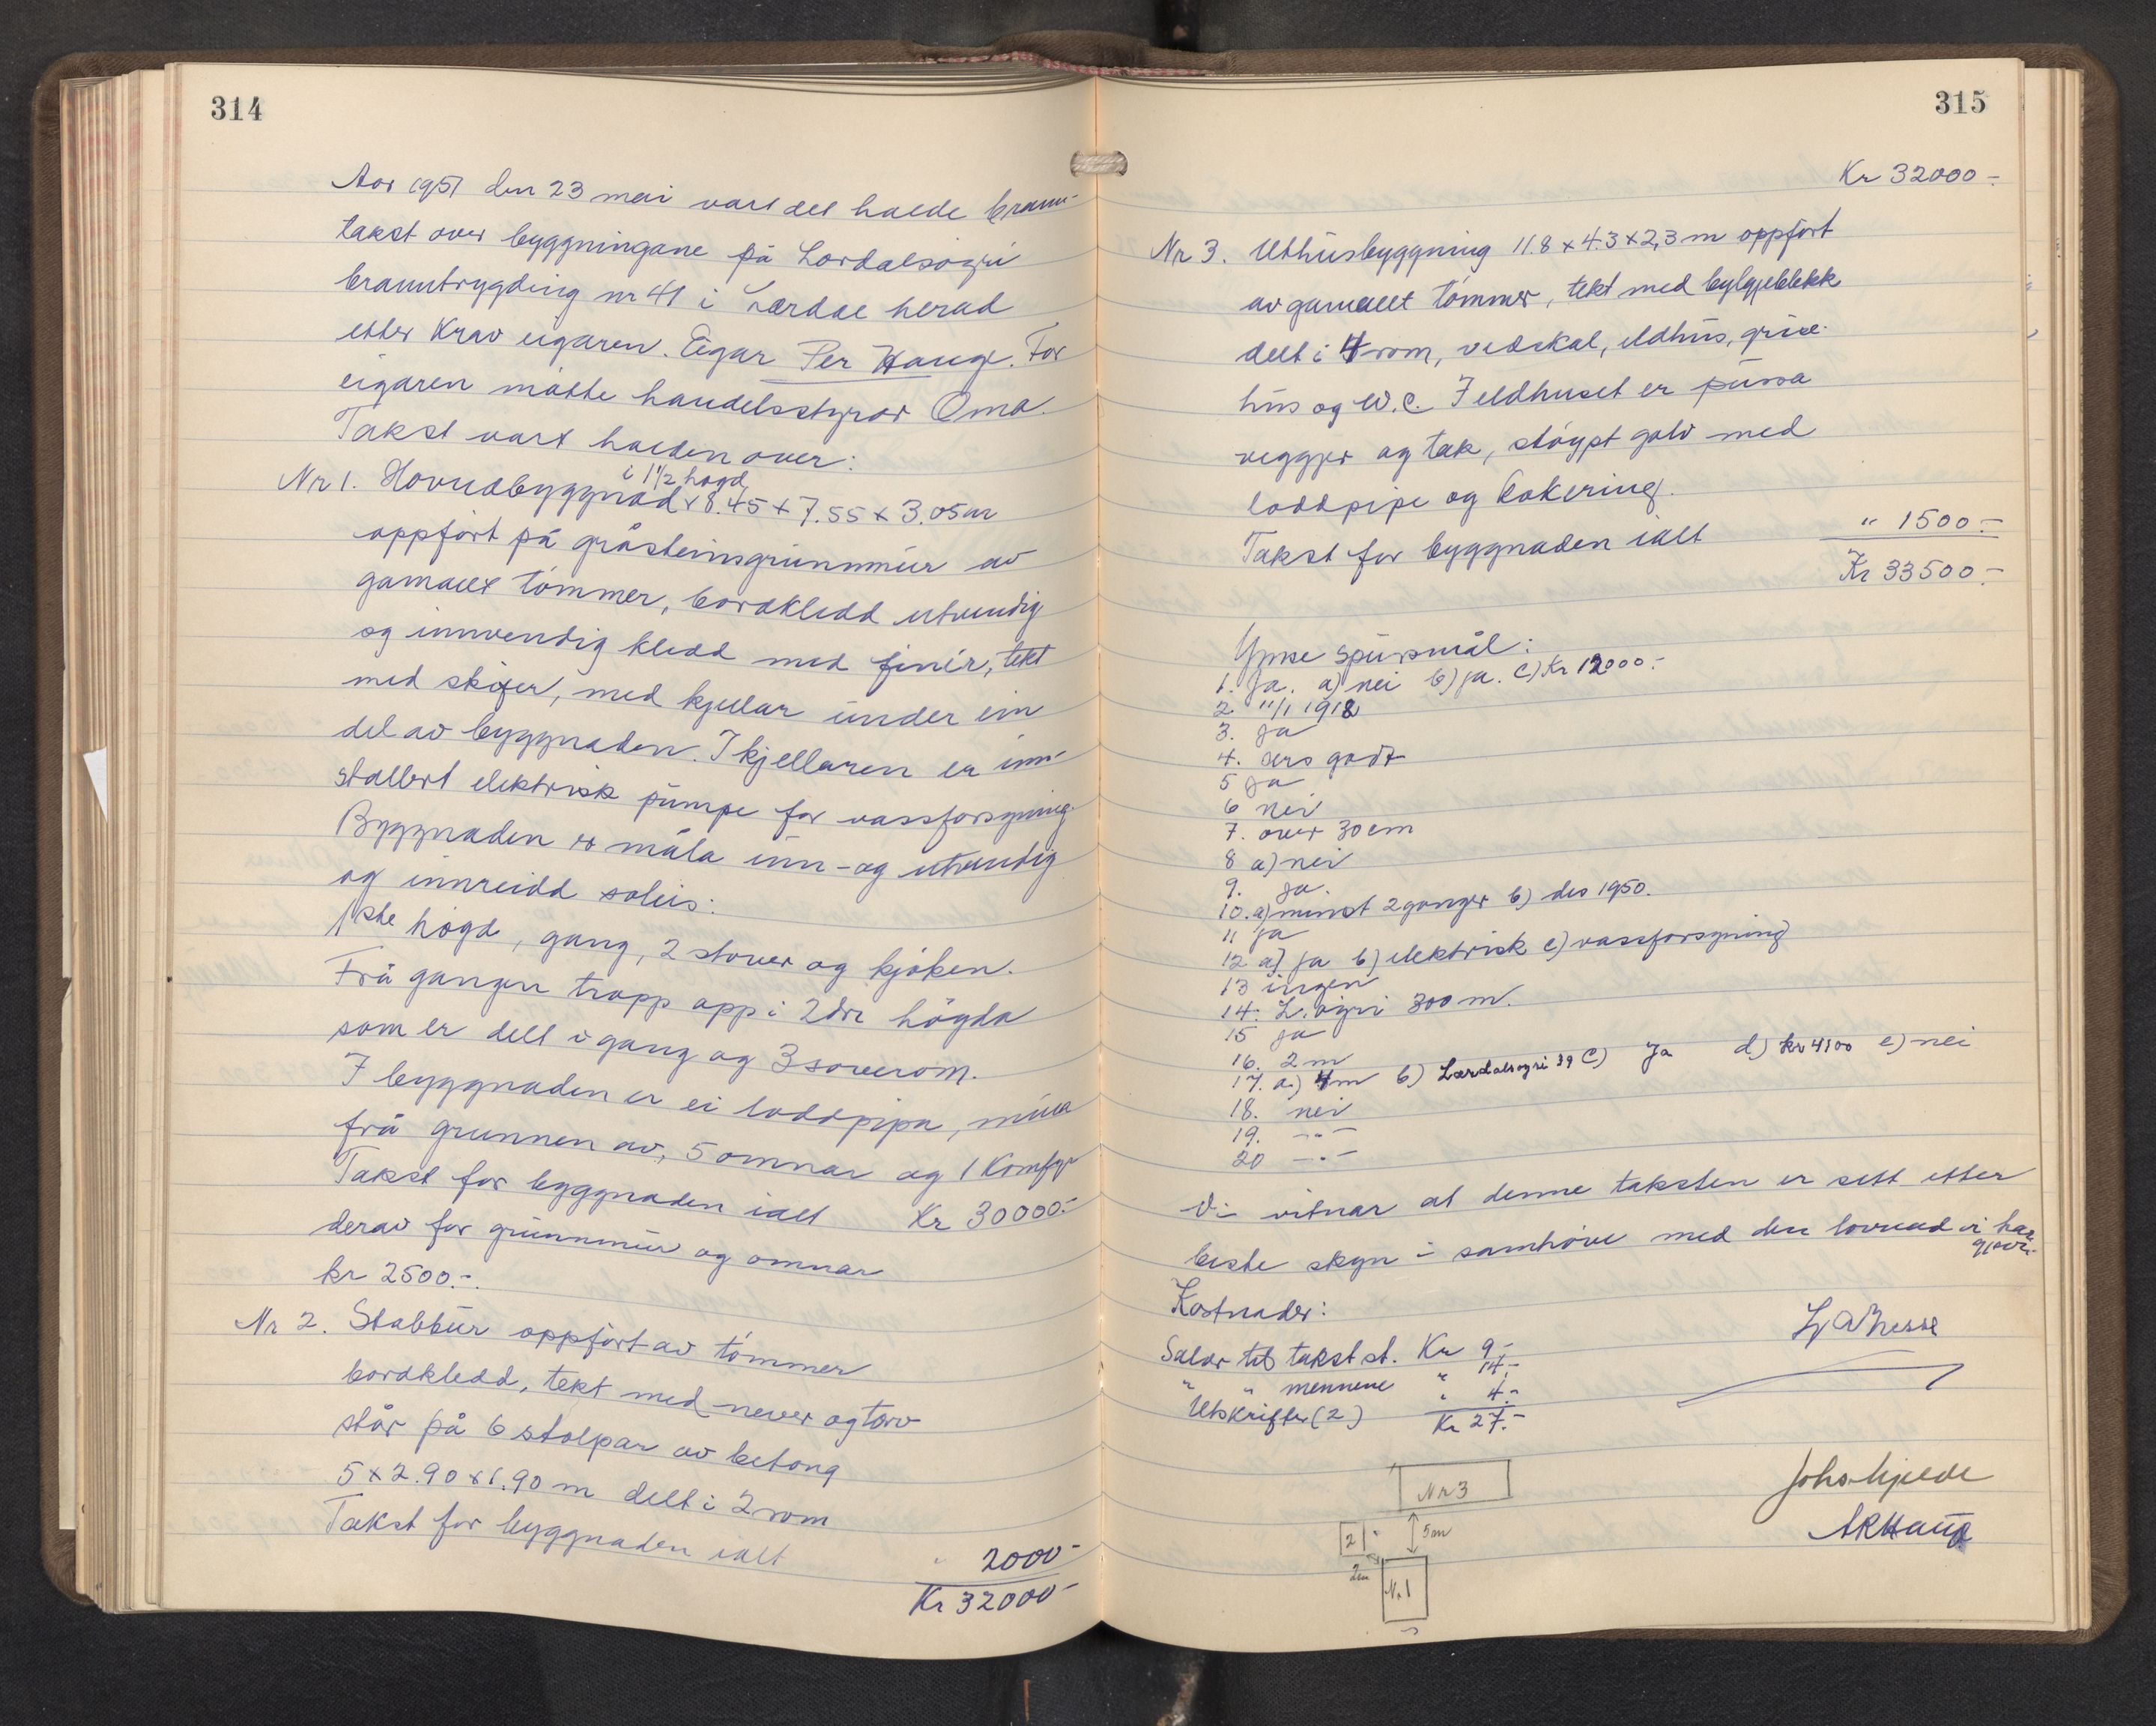 314
Aar 1951 den 23 mai vart det halde brann-
takst over byggningane på Lærdalsøyri
branntrygding nr 41 i Lærdal herad
etter Krav eigaren. Eigar Per Haug. For
eigaren møtte handelsstyrar Oma.
Takst vart halden over:
i 1 1/2 høgd
Nr 1. Hovudbyggnad x 8.45 x 7.55 x 3.05 m
oppført på gråsteinsgrunnmur av
gamalt tømmer, bordkledd utvendig
og innvendig kledd med finér, tekt
med skifer, med kjellar under ein
del av byggnaden. I kjellaren er inn-
stallert elektrisk pumpe for vassforsyning
Byggnaden er måla inn- og utvendig
og innreidd soleis:
1ste høgd, gang, 2 stover og kjøken.
Frå gangen trapp opp i 2dre høgda
som er delt i gang og 3 soverom.
I byggnaden er ei loddpipa, mura
frå grunnen av, 5 omnar og 1 Komfyr
Takst for byggnaden ialt Kr 30000.-
derav for grunnmur og omnar
kr 2500.-.
Nr 2. Stabbur oppført av tømmer
bordkledd, tekt med never og torv
står på 6 stolpar av betong
5 x 2.90 x 1.90 m delt i 2 rom
Takst for byggnaden ialt " 2000-
Kr 32000-
315
Kr 32000-
Nr 3. Uthusbyggning 11.8 x 4.3 x 2,3 m oppført
av gamalt tømmer, tekt med bylgjeblekk
delt i 4 rom, vedskal, eldhus, grise-
hus og W.C. I eldhuset er pussa
vegger og tak, støypt golv med
loddpipe og kokering.
Takst for byggnaden ialt " 1500.-
Kr 33500.-
Ymse spursmål:
1. Ja. a) nei b) ja. c) Kr 12000.-
2. 11/1 1918
3. Ja
4. sers godt
5 Ja
6 nei
7. over 30 cm
8 a) nei
9. ja.
10. a) minst 2 ganger b) des 1950.
11 ja
12 a) ja b) elektrisk c) vassforsyning
13 ingen
14. L.øyri 300 m.
15 ja
16. 2 m
17. a) 4 m b) Lærdalsøyri 39 c) Ja d) kr 4100 e) nei
18. nei
19. -"-
20 -"-
Vi vitnar at denne taksten er sett etter
beste skyn i samhøve med den lovnad vi har
gjevi.
Kostnader:
Salær til takst st. Kr 9-
" " mennene " 14.-
Utskrifter (2) " 4.-
Kr 27.-
Nr 3
5m
2
2m
Nr. 1